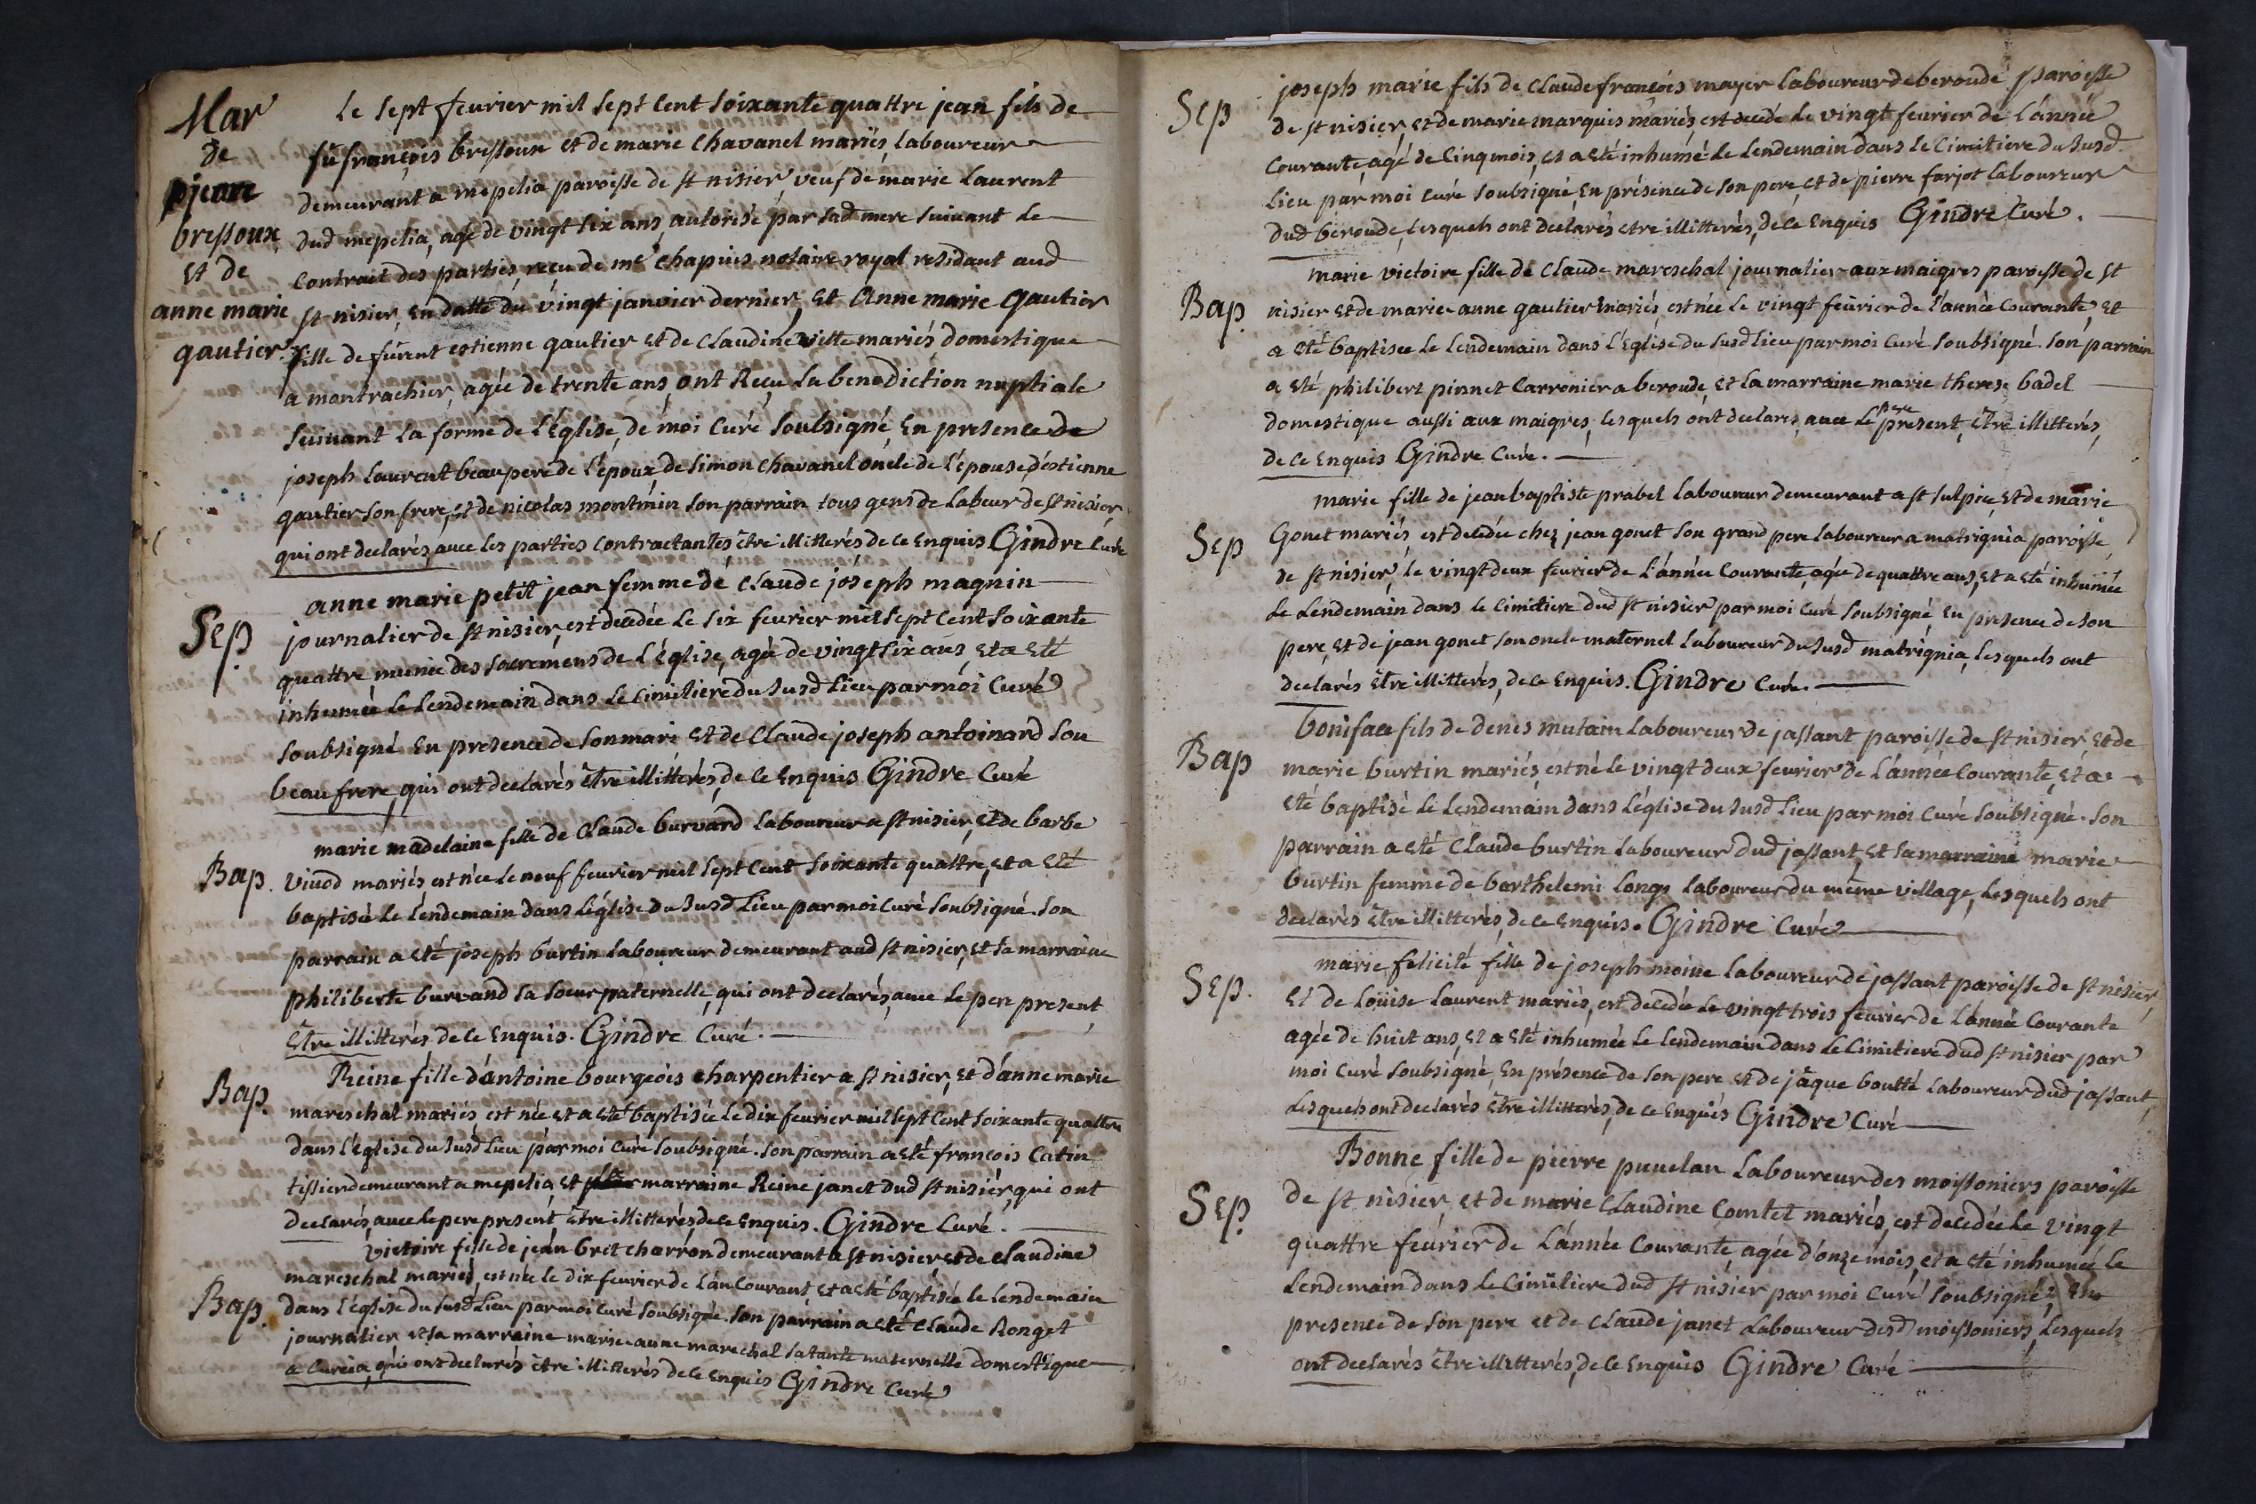 Mar
de
jean
bressoux
et de
anne marie
gautier
Le sept fevrier mil sept cent soixante quattre jean fils de
fû françois bressoux et de marie chavanel mariés, laboureur
demeurant a mepelia paroisse de st nisier, veuf de marie laurent
dud mepelia, agé de vingt six ans, autorisé par sad mere suivant le
contrait des parties reçu de me chapuis notaire royal residant aud
st nisier, en datte du vingt janvier dernier, et Anne marie gautier
fille de fûrent estienne gautier et de claudine vitte mariés domestique
a montrachier, agée de trente ans, ont Reçu la benediction nuptiale
suivant la forme de l'Église, de moi Curé soubsigné, En presence de
joseph laurent beaupere de l'époux, de simon chavanel oncle de l'épouse, d'estienne
gautier son frere, et de nicolas montmin son parrain tous gens de labeur de st nisier,
qui ont declarés, avec les parties contractantes être illitterés de ce enquis Gindre Curé
Sep.
anne marie petit jean femme de claude joseph magnin
journalier de st nisier, est decedée le six fevrier mil sept cent soixante
quattre munie des sacremens de l'église, agée de vingt six ans, et a esté
inhumée le lendemain dans le cimitiere du susd lieu par moi Curé
soubsigné En presence de son mari et de claude joseph antoinard son
beaufrere, qui ont declarés être illitterés, de ce enquis Gindre Curé
Bap.
marie madelaine fille de claude burvand laboureur a st nisier, et de barbe
viuod mariés, est née le neuf fevrier mil sept cent soixante quattre, et a esté
baptisée le lendemain dans l'église du susd lieu par moi Curé soubsigné. son
parrain a esté joseph burtin laboureur demeurant aud st nisier, et sa marraine
philiberte burvand sa soeur paternelle, qui ont declarés, avec le pere present,
être illitterés de ce enquis. Gindre Curé.
Bap.
Reine fille d'antoine bourgeois charpentier a st nisier, et d'anne marie
mareschal mariés, est née et a esté baptisée le dix fevrier mil sept cent soixante quattre
dans l'église du susd lieu par moi Curé soubsigné. son parrain a esté françois Catin
tissier demeurant a mepelia, et marraine Reine janet dud st nisier, qui ont
declarés, avec le pere present, être illitterés de ce enquis. Gindre Curé.
Bap.
victoire fille de jean bret charron demeurant a st nisier, et de claudine
mareschal mariés, est née le dix fevrier de l'an courant, et a esté baptisée le lendemain
dans l'église du susd lieu par moi Curé soubsigné. son parrain a esté claude Ronget
journalier et sa marraine marie anne marechal sa tante maternelle domestique
a qui ont declarés être illitterés de ce enquis Gindre Curé
Sep
joseph marie fils de claude françois mayer laboureur de beroude paroisse
de st nisier, et de marie marquis mariés, est decedé le vingt fevrier de l'année
courante, agé de cinq mois, et a esté inhumé le lendemain dans le cimitiere du susd
lieu par moi curé soubsigné, En présence de son pere, et de pierre farjot laboureur
dud beroude, lesquels ont declarés etre illitterés, de ce enquis Gindre Curé.
Bap.
marie victoire fille de claude mareschal journalier aux maigres paroisse de st
nisier et de marie anne gautier mariés, est née le vingt fevrier de l'année courante, et
a esté baptisée le lendemain dans l'église du susd lieu par moi curé soubsigné. son parrain
a esté philibert pinnet carronier a beroude, et la marraine marie therese badel
domestique aussi aux maigres, lesquels ont declarés, avec le pere present, être illitterés,
de ce enquis Gindre Curé.
Sep
marie fille de jean baptiste prabel laboureur demeurant a st sulpice, et de marie
Gonet mariés est decedée chez jean gonet son grand pere laboureur a matrignia paroisse,
de st nisier, le vingt deux fevrier de l'année courante, agée de quattre ans, et a esté inhumée
le lendemain dans le cimitiere dud st nisier par moi curé soubsigné En presence de son
pere, et de jean gonet son oncle maternel laboureur du susd matrignia, lesquels ont
declarés être illitterés, de ce enquis. Gindre Curé.
Bap
boniface fils de denis mutain laboureur de jassant paroisse de st nisier, et de
marie burtin mariés, est né le vingt deux fevrier de l'année courante, et a
esté baptisé le lendemain dans l'église du susd lieu par moi curé soubsigné. son
parrain a esté claude burtin laboureur dud jassant, et sa marraine marie
burtin femme de barthelemi long laboureur du même village, lesquels ont
declarés être illitterés, de ce enquis. Gindre Curé
Sep.
marie felicité fille de joseph moine laboureur de jassant paroisse de st nisier,
et de loüise laurent mariés, est decedée le vingt trois fevrier de l'année courante
agée de huit ans, et a esté inhumée le lendemain dans le cimitiere dud st nisier par
moi curé soubsigné, En présence de son pere et de jâque boutté laboureur dud jassant,
lesquels ont declarés être illitterés, de ce enquis Gindre Curé
Sep.
Bonne fille de pierre puvelan laboureur des moissoniers paroisse
de st nisier, et de marie claudine comtet mariés, est decedée le vingt
quattre fevrier de l'année courante, agée d'onze mois, et a esté inhumée le
lendemain dans le cimitiere dud st nisier par moi Curé soubsigné, En
presence de son pere et de claude janet laboureur desd moissoniers, lesquels
ont declarés être illitterés, de ce enquis Gindre Curé